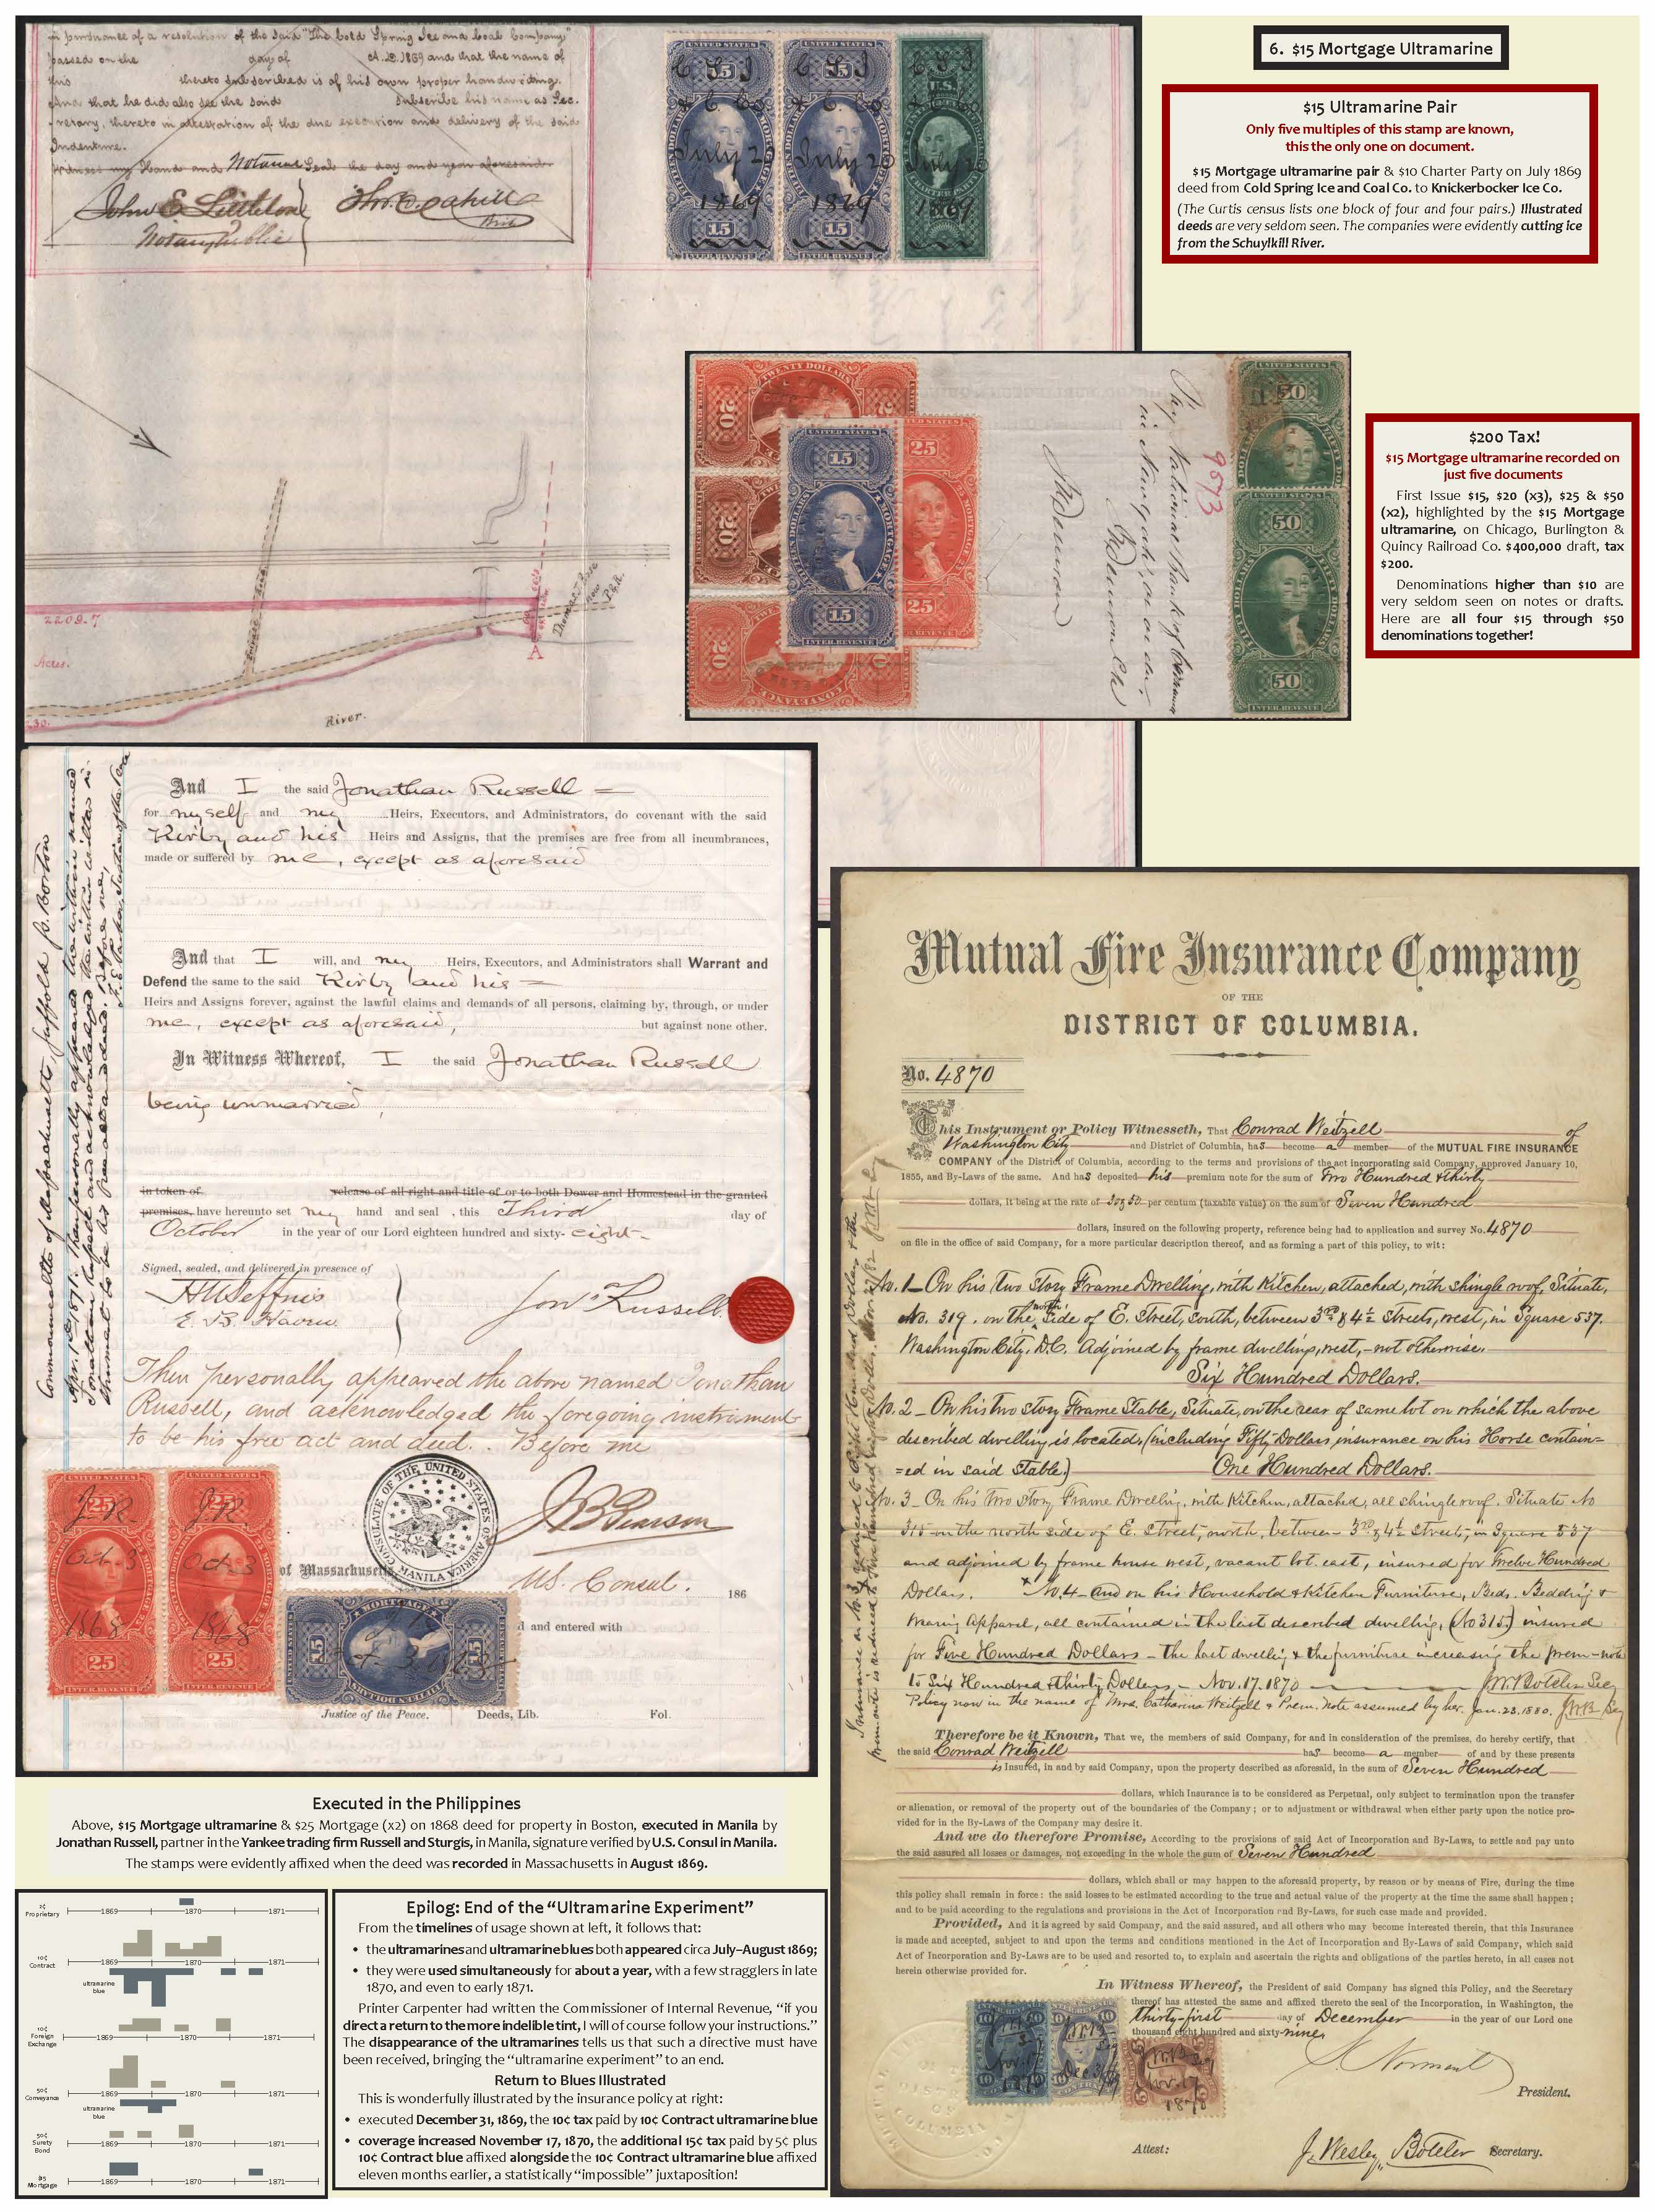 in pursuance of a resolution of the said "The Cold Spring Ice and Coal Company"
passed on the day of A.D. 1869 and that the name of
this thereto subscribed is of his own proper handwriting.
And that he did also see the said subscribe his name as Sec.
retary, thereto in attestation of the due execution and delivery of the said
Indenture.
Witness my Hand and Notarial Seal the day and year aforesaid
John E Littleton
Notary Public
Thos. Cahill
UNITED STATES
15
C S I
& C. Co
July 20
1869
15
INTER. REVENUE
UNITED STATES
15
C S I
& C. Co
July 20
1869
15
INTER. REVENUE
C S I
U.S.
July 20
CHARTER PARTY
1869
2209.7
Acres.
River.
A
6. $15 Mortgage Ultramarine
$15 Ultramarine Pair
Only five multiples of this stamp are known,
this the only one on document.
$15 Mortgage ultramarine pair & $10 Charter Party on July 1869
deed from Cold Spring Ice and Coal Co. to Knickerbocker Ice Co.
(The Curtis census lists one block of four and four pairs.) Illustrated
deeds are very seldom seen. The companies were evidently cutting ice
from the Schuylkill River.
TWENTY DOLLARS
20
UNITED STATES
15
FIFTEEN DOLLARS
MORTGAGE
15
INTER. REVENUE
25
MORTGAGE
25
CONVEYANCE
Pay National Bank of
9573
UNITED STATES
50
UNITED STATES
50
50
INTER. REVENUE
$200 Tax!
$15 Mortgage ultramarine recorded on
just five documents
First Issue $15, $20 (x3), $25 & $50
(x2), highlighted by the $15 Mortgage
ultramarine, on Chicago, Burlington &
Quincy Railroad Co. $400,000 draft, tax
$200.
Denominations higher than $10 are
very seldom seen on notes or drafts.
Here are all four $15 through $50
denominations together!
And I the said Jonathan Russell
for myself and my Heirs, Executors, and Administrators, do covenant with the said
Kirby and his Heirs and Assigns, that the premises are free from all incumbrances,
made or suffered by me, except as aforesaid
And that I will, and my Heirs, Executors, and Administrators shall Warrant and
Defend the same to the said Kirby and his
Heirs and Assigns forever, against the lawful claims and demands of all persons, claiming by, through, or under
me, except as aforesaid, but against none other.
In Witness Whereof, I the said Jonathan Russell
being unmarried,
in token of release of all right and title of or to both Dower and Homestead in the granted
premises, have hereunto set my hand and seal, this Third day of
October in the year of our Lord eighteen hundred and sixty-eight
Signed, sealed, and delivered in presence of
Jon' Russell
Then personally appeared the above named Jonathan
Russell, and acknowledged the foregoing instrument
to be his free act and deed. Before me
CONSULATE OF THE UNITED STATES OF AMERICA
MANILA
J B Pearson
U.S. Consul.
of Massachusetts 186
d and entered with
Justice of the Peace. Deeds, Lib. Fol.
UNITED STATES
25
J.R.
Oct. 3
1868
25
INTER. REVENUE
UNITED STATES
25
J.R.
Oct. 3
1868
25
INTER. REVENUE
MORTGAGE
15
15
FIFTEEN DOLLARS
Mutual Fire Insurance Company
OF THE
DISTRICT OF COLUMBIA.
No. 4870
This Instrument or Policy Witnesseth, That Conrad Weitzell of
Washington City and District of Columbia, has become a member of the MUTUAL FIRE INSURANCE
COMPANY of the District of Columbia, according to the terms and provisions of the act incorporating said Company, approved January 10,
1855, and By-Laws of the same. And has deposited his premium note for the sum of Two Hundred & thirty
dollars, it being at the rate of per centum (taxable value) on the sum of Seven Hundred
dollars, insured on the following property, reference being had to application and survey No. 4870
on file in the office of said Company, for a more particular description thereof, and as forming a part of this policy, to wit:
No. 1 – On his two story Frame Dwelling, with Kitchen, attached, with shingle roof, Situate,
No. 319. on the north Side of E. Street, South, between 3rd & 4½ Streets, west, in Square 537.
Washington City, D.C. Adjoined by frame dwelling, west, – not otherwise.
Six Hundred Dollars.
No. 2 – On his two story Frame Stable, Situate, on the rear of same lot on which the above
described dwelling is located, (including Fifty Dollars insurance on his Horse contain=
=ed in said Stable.) One Hundred Dollars.
No. 3 – On his two story Frame Dwelling, with Kitchen, attached, all shingle roof. Situate No
315 on the north side of E. Street, north, between 3rd & 4½ Streets, in Square 537
and adjoined by frame house west, vacant lot east, insured for Twelve Hundred
Dollars. No. 4 – and on his Household & Kitchen Furniture, Beds, Bedding &
Wearing Apparel, all contained in the last described dwelling, (No 315.) insured
for Five Hundred Dollars – the last dwelling & the furniture increasing the prem-note
to Six Hundred & thirty Dollars, – Nov. 17. 1870 J.W. Boteler Secy
Policy now in the name of Mrs. Catharine Weitzell & Prem. Note assumed by her. Jan. 23. 1880.
Therefore be it Known, That we, the members of said Company, for and in consideration of the premises, do hereby certify, that
the said Conrad Weitzell has become a member of and by these presents
is Insured, in and by said Company, upon the property described as aforesaid, in the sum of Seven Hundred
dollars, which Insurance is to be considered as Perpetual, only subject to termination upon the transfer
or alienation, or removal of the property out of the boundaries of the Company; or to adjustment or withdrawal when either party upon the notice pro-
vided for in the By-Laws of the Company may desire it.
And we do therefore Promise, According to the provisions of said Act of Incorporation and By-Laws, to settle and pay unto
the said assured all losses or damages, not exceeding in the whole the sum of Seven Hundred
dollars, which shall or may happen to the aforesaid property, by reason or by means of Fire, during the time
this policy shall remain in force: the said losses to be estimated according to the true and actual value of the property at the time the same shall happen;
and to be paid according to the regulations and provisions in the Act of Incorporation and By-Laws, for such case made and provided.
Provided, And it is agreed by said Company, and the said assured, and all others who may become interested therein, that this Insurance
is made and accepted, subject to and upon the terms and conditions mentioned in the Act of Incorporation and By-Laws of said Company, which said
Act of Incorporation and By-Laws are to be used and resorted to, to explain and ascertain the rights and obligations of the parties hereto, in all cases not
herein otherwise provided for.
In Witness Whereof, the President of said Company has signed this Policy, and the Secretary
thereof has attested the same and affixed thereto the seal of the Incorporation, in Washington, the
thirty-first day of December in the year of our Lord one
thousand eight hundred and sixty-nine,
President.
Attest: J. Wesley Boteler Secretary.
Executed in the Philippines
Above, $15 Mortgage ultramarine & $25 Mortgage (x2) on 1868 deed for property in Boston, executed in Manila by
Jonathan Russell, partner in the Yankee trading firm Russell and Sturgis, in Manila, signature verified by U.S. Consul in Manila.
The stamps were evidently affixed when the deed was recorded in Massachusetts in August 1869.
2¢
Proprietary
1869 1870 1871
10¢
Contract
1869 1870 1871
ultramarine
blue
10¢
Foreign
Exchange
1869 1870 1871
50¢
Conveyance
1869 1870 1871
ultramarine
blue
50¢
Surety
Bond
1869 1870 1871
$15
Mortgage
1869 1870 1871
Epilog: End of the “Ultramarine Experiment”
From the timelines of usage shown at left, it follows that:
• the ultramarines and ultramarine blues both appeared circa July–August 1869;
• they were used simultaneously for about a year, with a few stragglers in late
1870, and even to early 1871.
Printer Carpenter had written the Commissioner of Internal Revenue, “if you
direct a return to the more indelible tint, I will of course follow your instructions.”
The disappearance of the ultramarines tells us that such a directive must have
been received, bringing the “ultramarine experiment” to an end.
Return to Blues Illustrated
This is wonderfully illustrated by the insurance policy at right:
• executed December 31, 1869, the 10¢ tax paid by 10¢ Contract ultramarine blue
• coverage increased November 17, 1870, the additional 15¢ tax paid by 5¢ plus
10¢ Contract blue affixed alongside the 10¢ Contract ultramarine blue affixed
eleven months earlier, a statistically “impossible” juxtaposition!